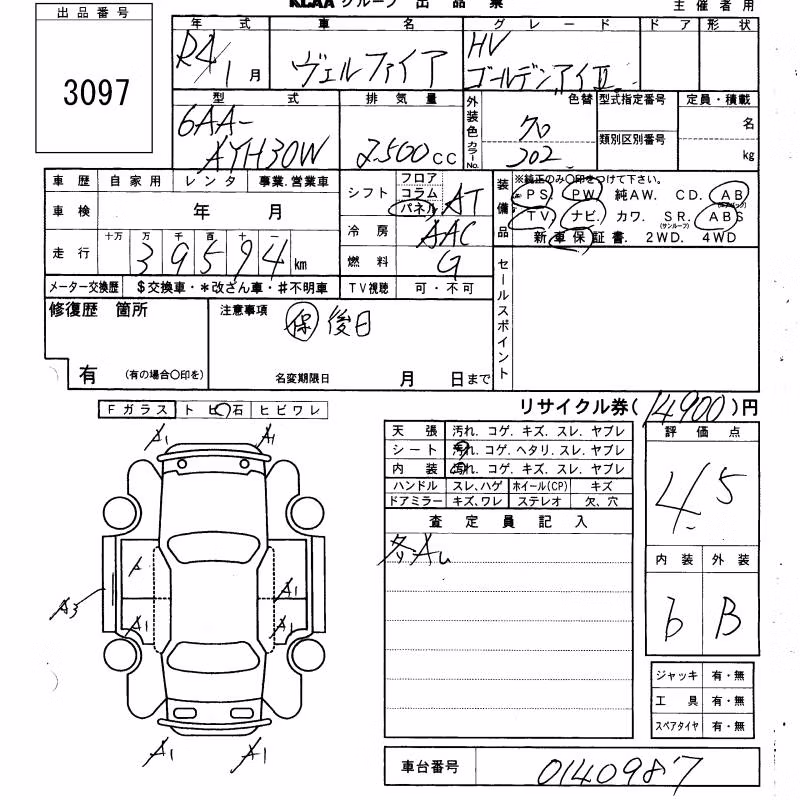 出品番号
3097
KCAA グループ 出 品 票
主催者用
年 式
R4/1月
車 名
ヴェルファイア
グレード
HV
ゴールデンアイⅡ
ドア 形状
型 式
6AA-
AYH30W
排気量
2500cc
外装色 カラーNo.
色替
クロ
302
型式指定番号
類別区別番号
定員・積載
名
kg
車歴 自家用 レンタ 事業.営業車
車検 年 月
走行 十万 万 千 百 十 一
39594 km
メーター交換歴 $交換車・*改ざん車・♯不明車
シフト フロア コラム パネル AT
冷房 AAC
燃料 G
TV視聴 可・不可
装備品
※純正のみ○印をつけて下さい。
PS. PW. 純AW. CD. AB(エアバック)
TV. ナビ. カワ. SR.(サンルーフ) ABS
新車保証書. 2WD. 4WD
セールスポイント
修復歴 箇所
有 (有の場合○印を)
注意事項
保 後日
名変期限日 月 日まで
リサイクル券(14900)円
Fガラス トビ石 ヒビワレ
A1 A1
A1
A3 A1 A1
A1 A1
天張 汚れ. コゲ. キズ. スレ. ヤブレ
シート 汚れ. コゲ. ヘタリ. スレ. ヤブレ
内装 汚れ. コゲ. キズ. スレ. ヤブレ
ハンドル スレ,ハゲ ホイール(CP) キズ
ドアミラー キズ,ワレ ステレオ 欠、穴
査定員記入
評価点
4.5
内装 外装
b B
ジャッキ 有・無
工具 有・無
スペアタイヤ 有・無
車台番号
0140987